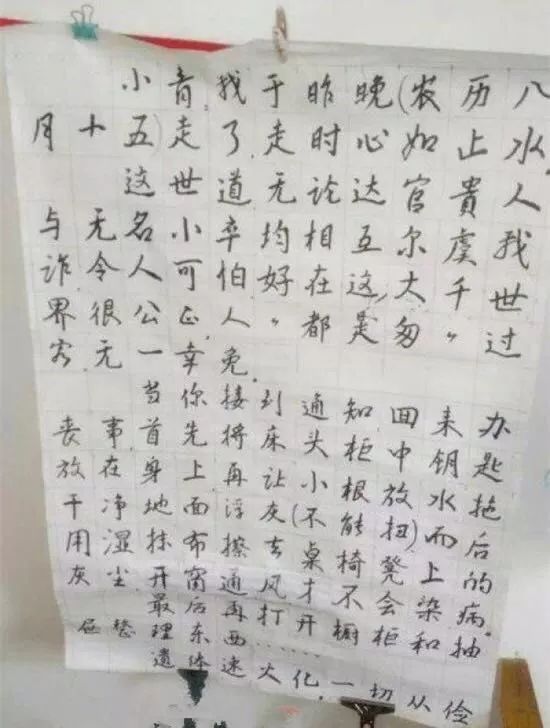 小青,我于昨晚(农历八
月十五)走了,走时心如止水,
这世道无论达官贵人
与无名小卒均相互尔虞我
诈,令人可怕,好在这大千世
界很公正,人〃都是匆〃过
客,无一幸免.
当你接到通知回来办
丧事,首先将床头柜中钥匙
放在身上,再让小根放水拖
干净地面浮灰(不能扭)而后
用湿抹布擦去桌椅凳上的
灰尘,开窗通风才不会染病.
最后再打开橱柜和抽
屉整理东西
遗体速火化,一切从俭